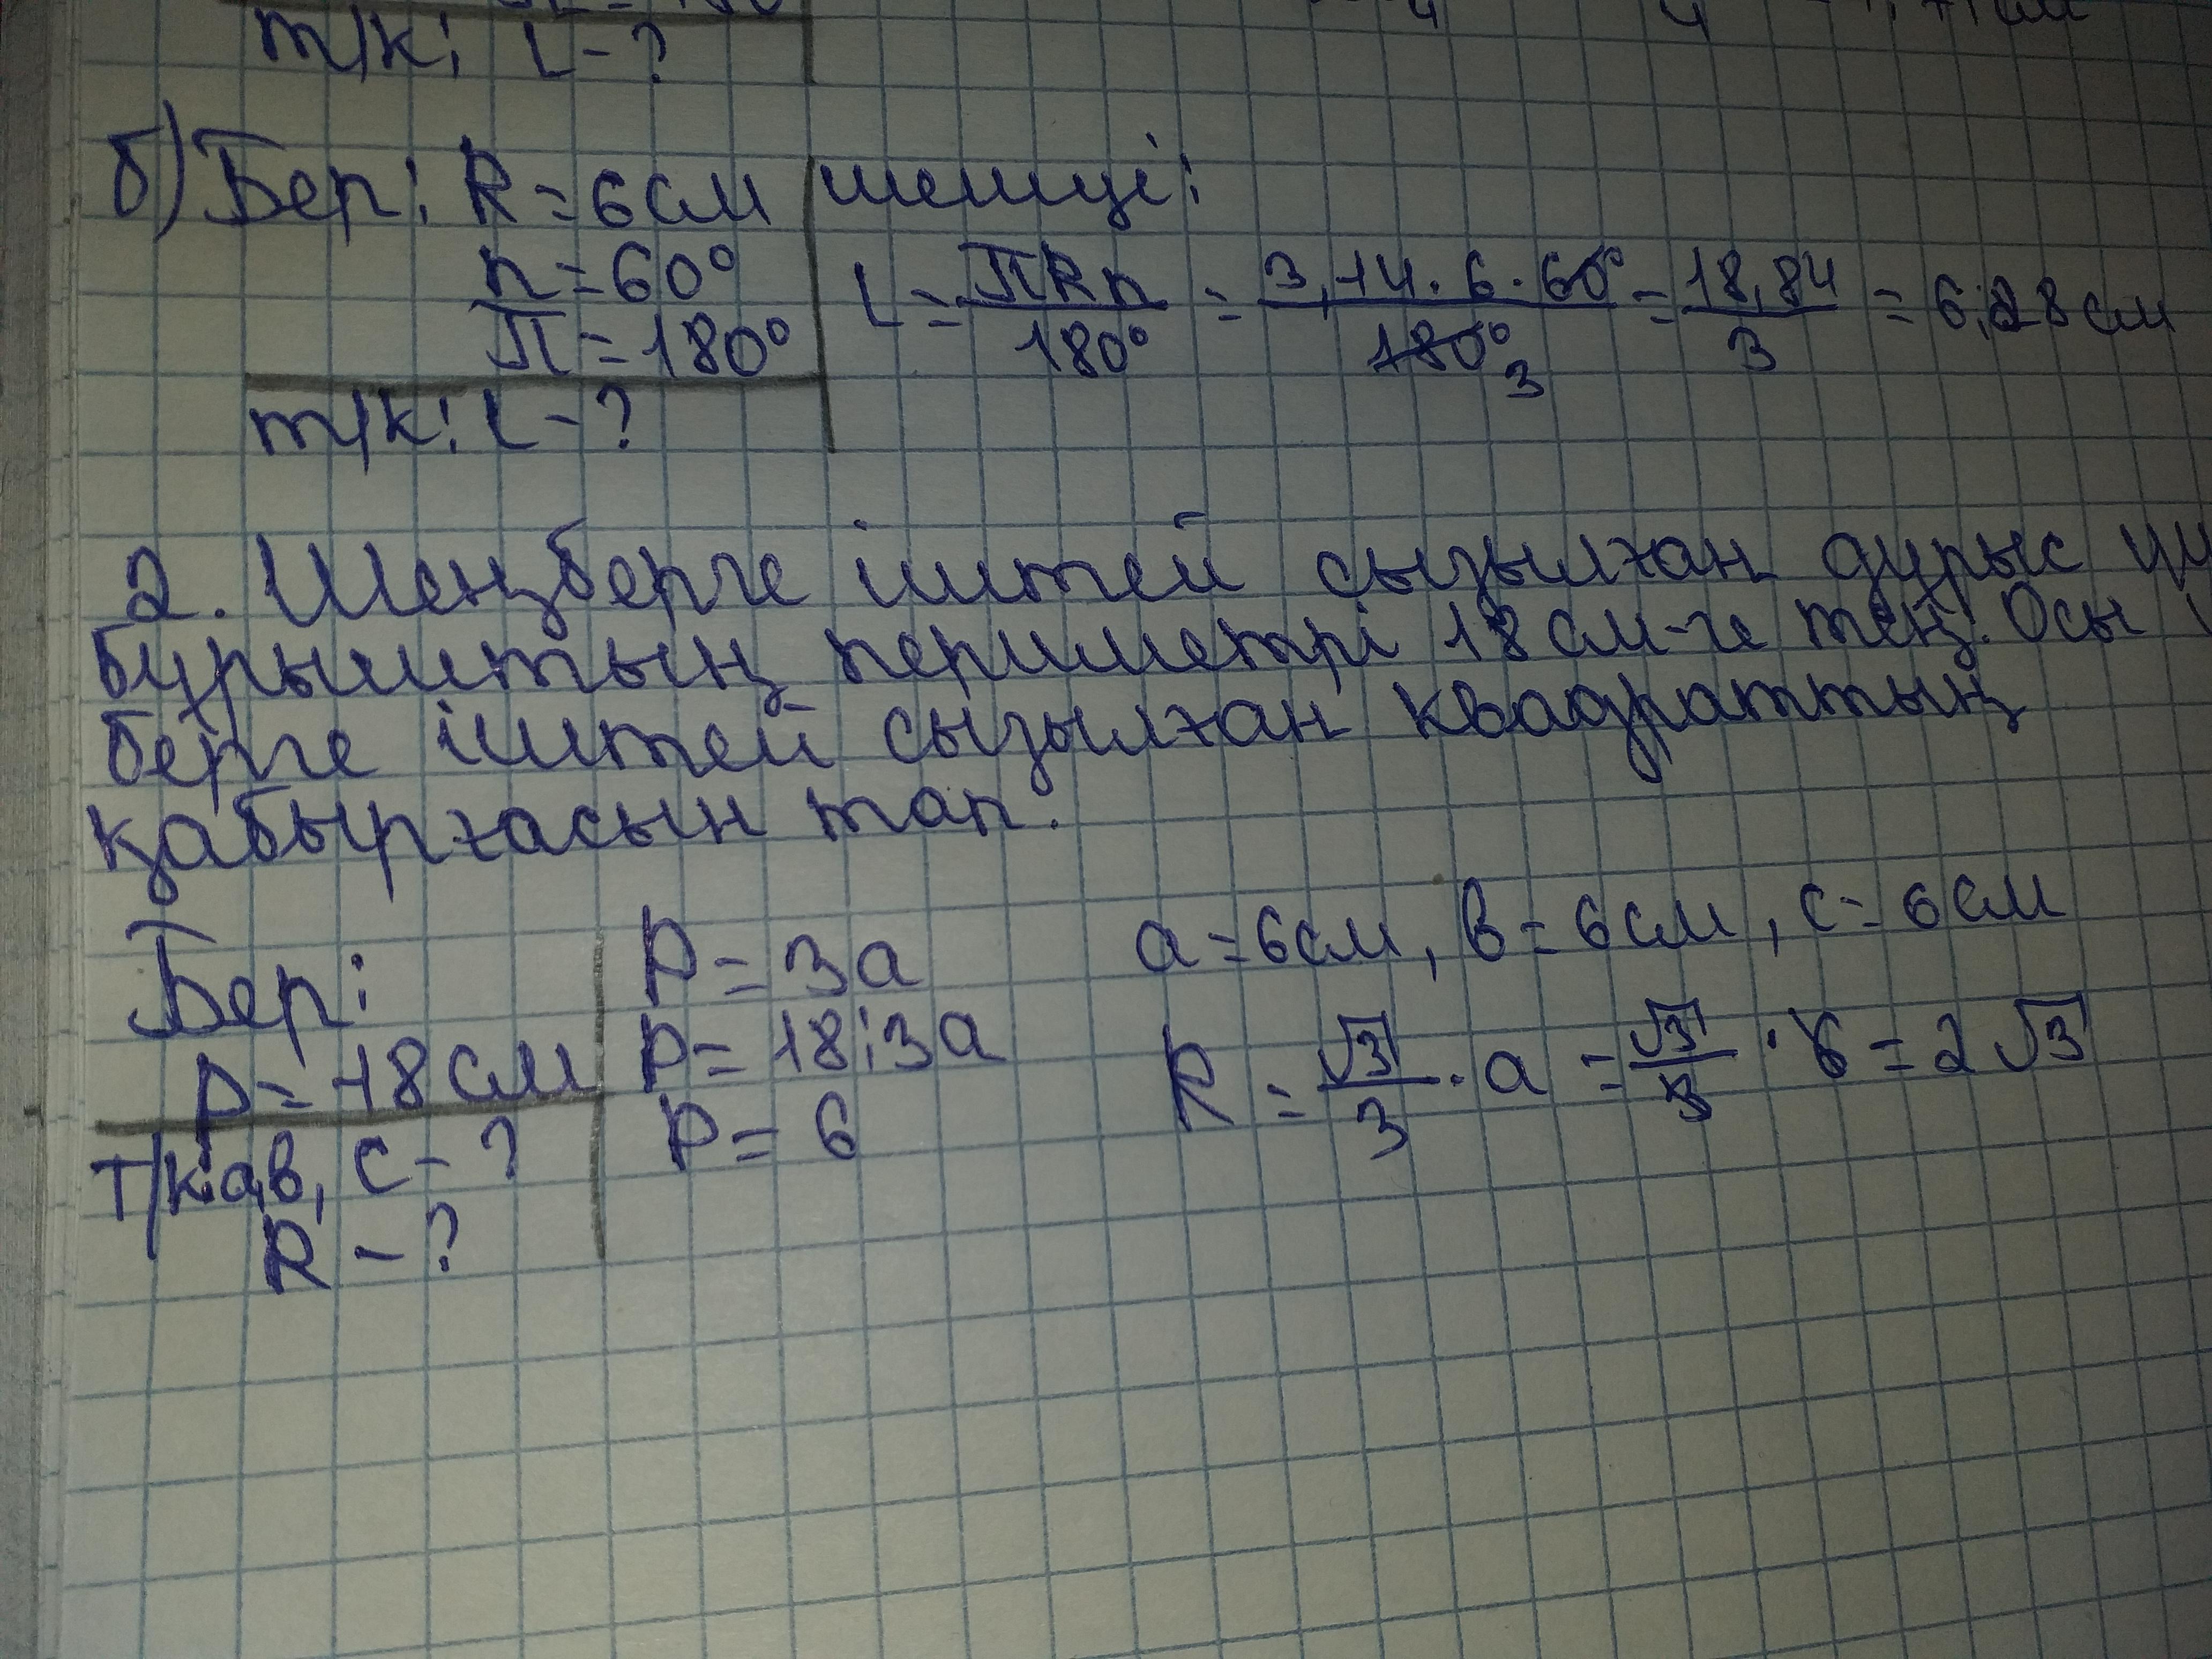 т/к: L - ?
б) Бер: R = 6 см шешуі:
n = 60°
П = 180°
L = ПRn / 180° = 3,14 · 6 · 60° / 180° 3 = 18,84 / 3 = 6,28 см
т/к: L - ?
2. Шеңберге іштей сызылған дұрыс үш
бұрыштың периметрі 18 см-ге тең. Осы
берге іштей сызылған квадраттың
қабырғасын тап.
Бер:
P = 18 см
т/к: а, в, с - ?
R - ?
P = 3a
P = 18:3a
P = 6
a = 6 см, в = 6 см, с = 6 см
R = √3 / 3 · a = √3 / 3 · 6 = 2√3